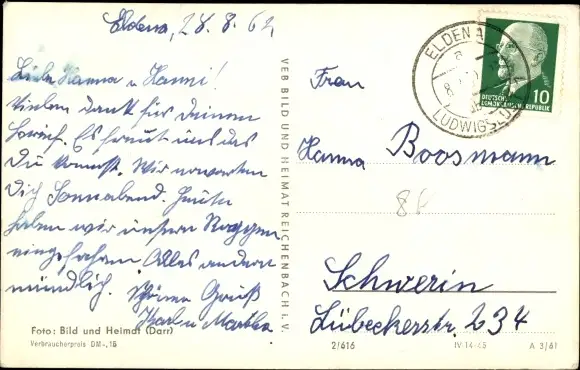 Eldena, 28.8.62
Liebe Hanna u. Hanni!
Vielen Dank für Deinen
Es freut uns das
Du kommst. Wir erwarten
Dich Sonnabend. Heute
haben wir unseren Roggen
eingefahren Alles andere
mündlich. Gruß
Karl u Martha
Foto: Bild und Heimat (Darr)
Verbraucherpreis DM -,15
VEB BILD UND HEIMAT REICHENBACH i. V.
ELDENA
LUDWIGSLUST
DEUTSCHE
DEMOKRATISCHE REPUBLIK
10
Frau
Hanna Boosmann
Schwerin
Lübeckerstr. 234
2/616 IV-14-45 A 3/61